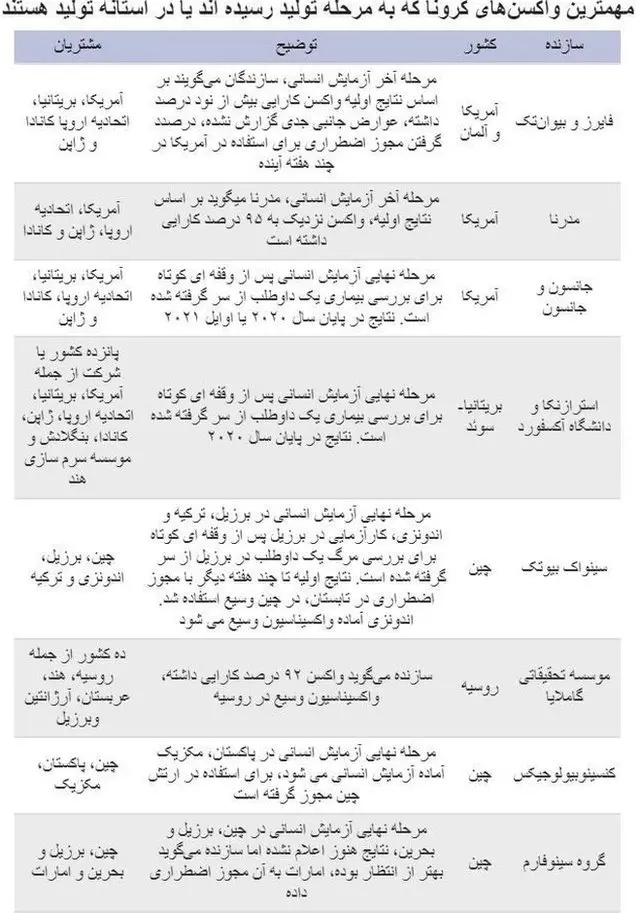 مهمترین واکسن‌های کرونا که به مرحله تولید رسیده اند یا در آستانه تولید هستند
سازنده کشور توضیح مشتریان
فایرز و بیوان‌تک
آمریکا
و آلمان
مرحله آخر آزمایش انسانی، سازندگان می‌گویند بر
اساس نتایج اولیه واکسن کارایی بیش از نود درصد
داشته، عوارض جانبی جدی گزارش نشده، درصدد
گرفتن مجوز اضطراری برای استفاده در آمریکا در
چند هفته آینده
آمریکا، بریتانیا،
اتحادیه اروپا کانادا
و ژاپن
مدرنا
آمریکا
مرحله آخر آزمایش انسانی، مدرنا میگوید بر اساس
نتایج اولیه، واکسن نزدیک به ۹۵ درصد کارایی
داشته است
آمریکا، اتحادیه
اروپا، ژاپن و کانادا
جانسون و
جانسون
آمریکا
مرحله نهایی آزمایش انسانی پس از وقفه ای کوتاه
برای بررسی بیماری یک داوطلب از سر گرفته شده
است. نتایج در پایان سال ۲۰۲۰ یا اوایل ۲۰۲۱
آمریکا، بریتانیا،
اتحادیه اروپا، کانادا
و ژاپن
استرازنکا و
دانشگاه آکسفورد
بریتانیا-
سوئد
مرحله نهایی آزمایش انسانی پس از وقفه ای کوتاه
برای بررسی بیماری یک داوطلب از سر گرفته شده
است. نتایج در پایان سال ۲۰۲۰
پانزده کشور یا
شرکت از جمله
آمریکا، بریتانیا،
اتحادیه اروپا، ژاپن،
کانادا، بنگلادش و
موسسه سرم سازی
هند
سینواک بیوتک
چین
مرحله نهایی آزمایش انسانی در برزیل، ترکیه و
اندونزی، کارآزمایی در برزیل پس از وقفه ای کوتاه
برای بررسی مرگ یک داوطلب در برزیل از سر
گرفته شده است. نتایج اولیه تا چند هفته دیگر با مجوز
اضطراری در تابستان، در چین وسیع استفاده شد.
اندونزی آماده واکسیناسیون وسیع می شود
چین، برزیل،
اندونزی و ترکیه
موسسه تحقیقاتی
گامالایا
روسیه
سازنده می‌گوید واکسن ۹۲ درصد کارایی داشته،
واکسیناسیون وسیع در روسیه
ده کشور از جمله
روسیه، هند،
عربستان، آرژانتین
وبرزیل
کنسینوبیولوجیکس
چین
مرحله نهایی آزمایش انسانی در پاکستان، مکزیک
آماده آزمایش انسانی می شود، برای استفاده در ارتش
چین مجوز گرفته است
چین، پاکستان،
مکزیک
گروه سینوفارم
چین
مرحله نهایی آزمایش انسانی در چین، برزیل و
بحرین، نتایج هنوز اعلام نشده اما سازنده می‌گوید
بهتر از انتظار بوده، امارات به آن مجوز اضطراری
داده
چین، برزیل و
بحرین و امارات